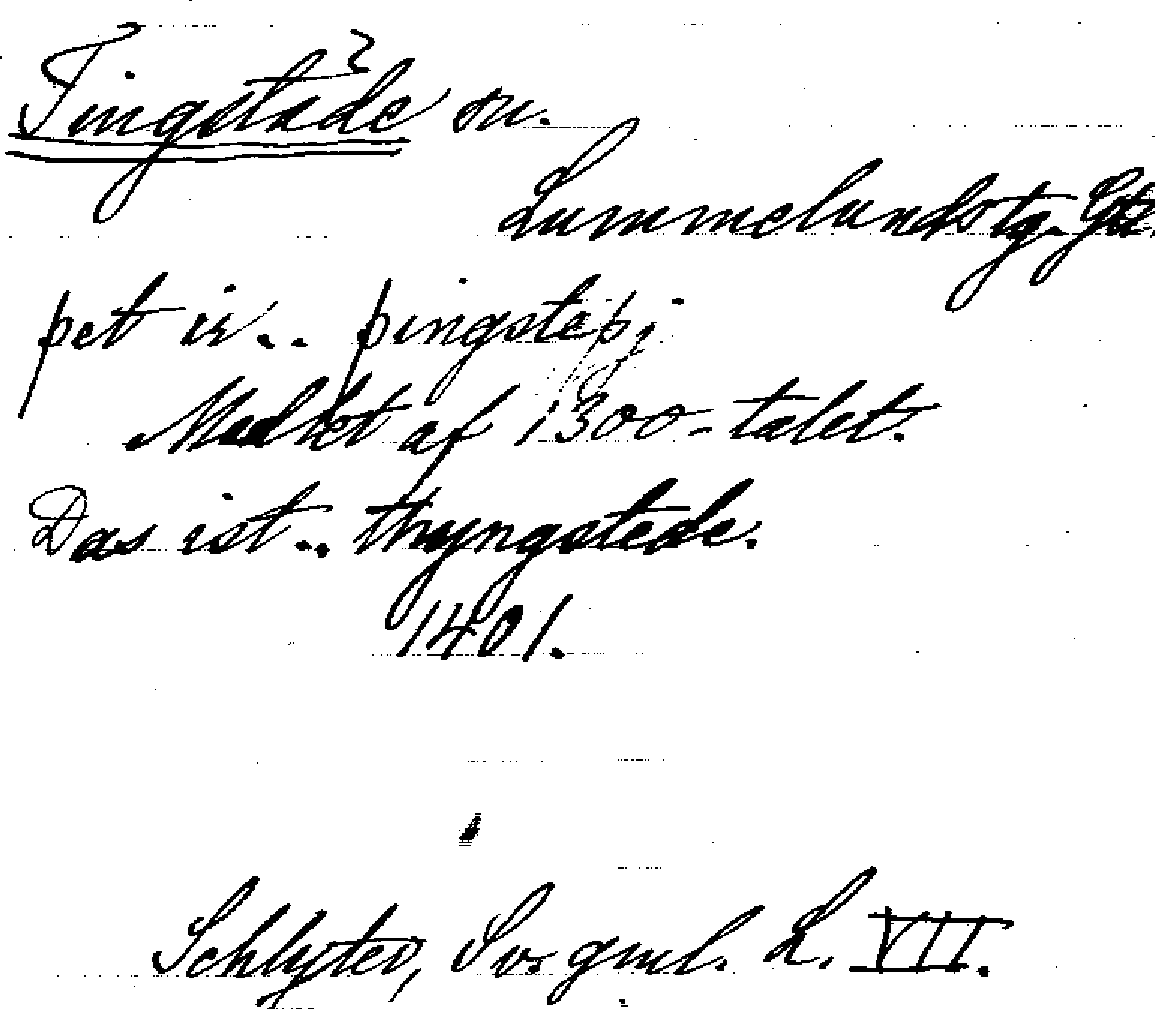 Tingstäde sn.
Lummelundstg. Gtl.
þet ir.. þingsteþi
Medlet af 1300-talet.
Das ist.. thyngstede.
1401.
Schlyter, Sv. gml. L. VII.